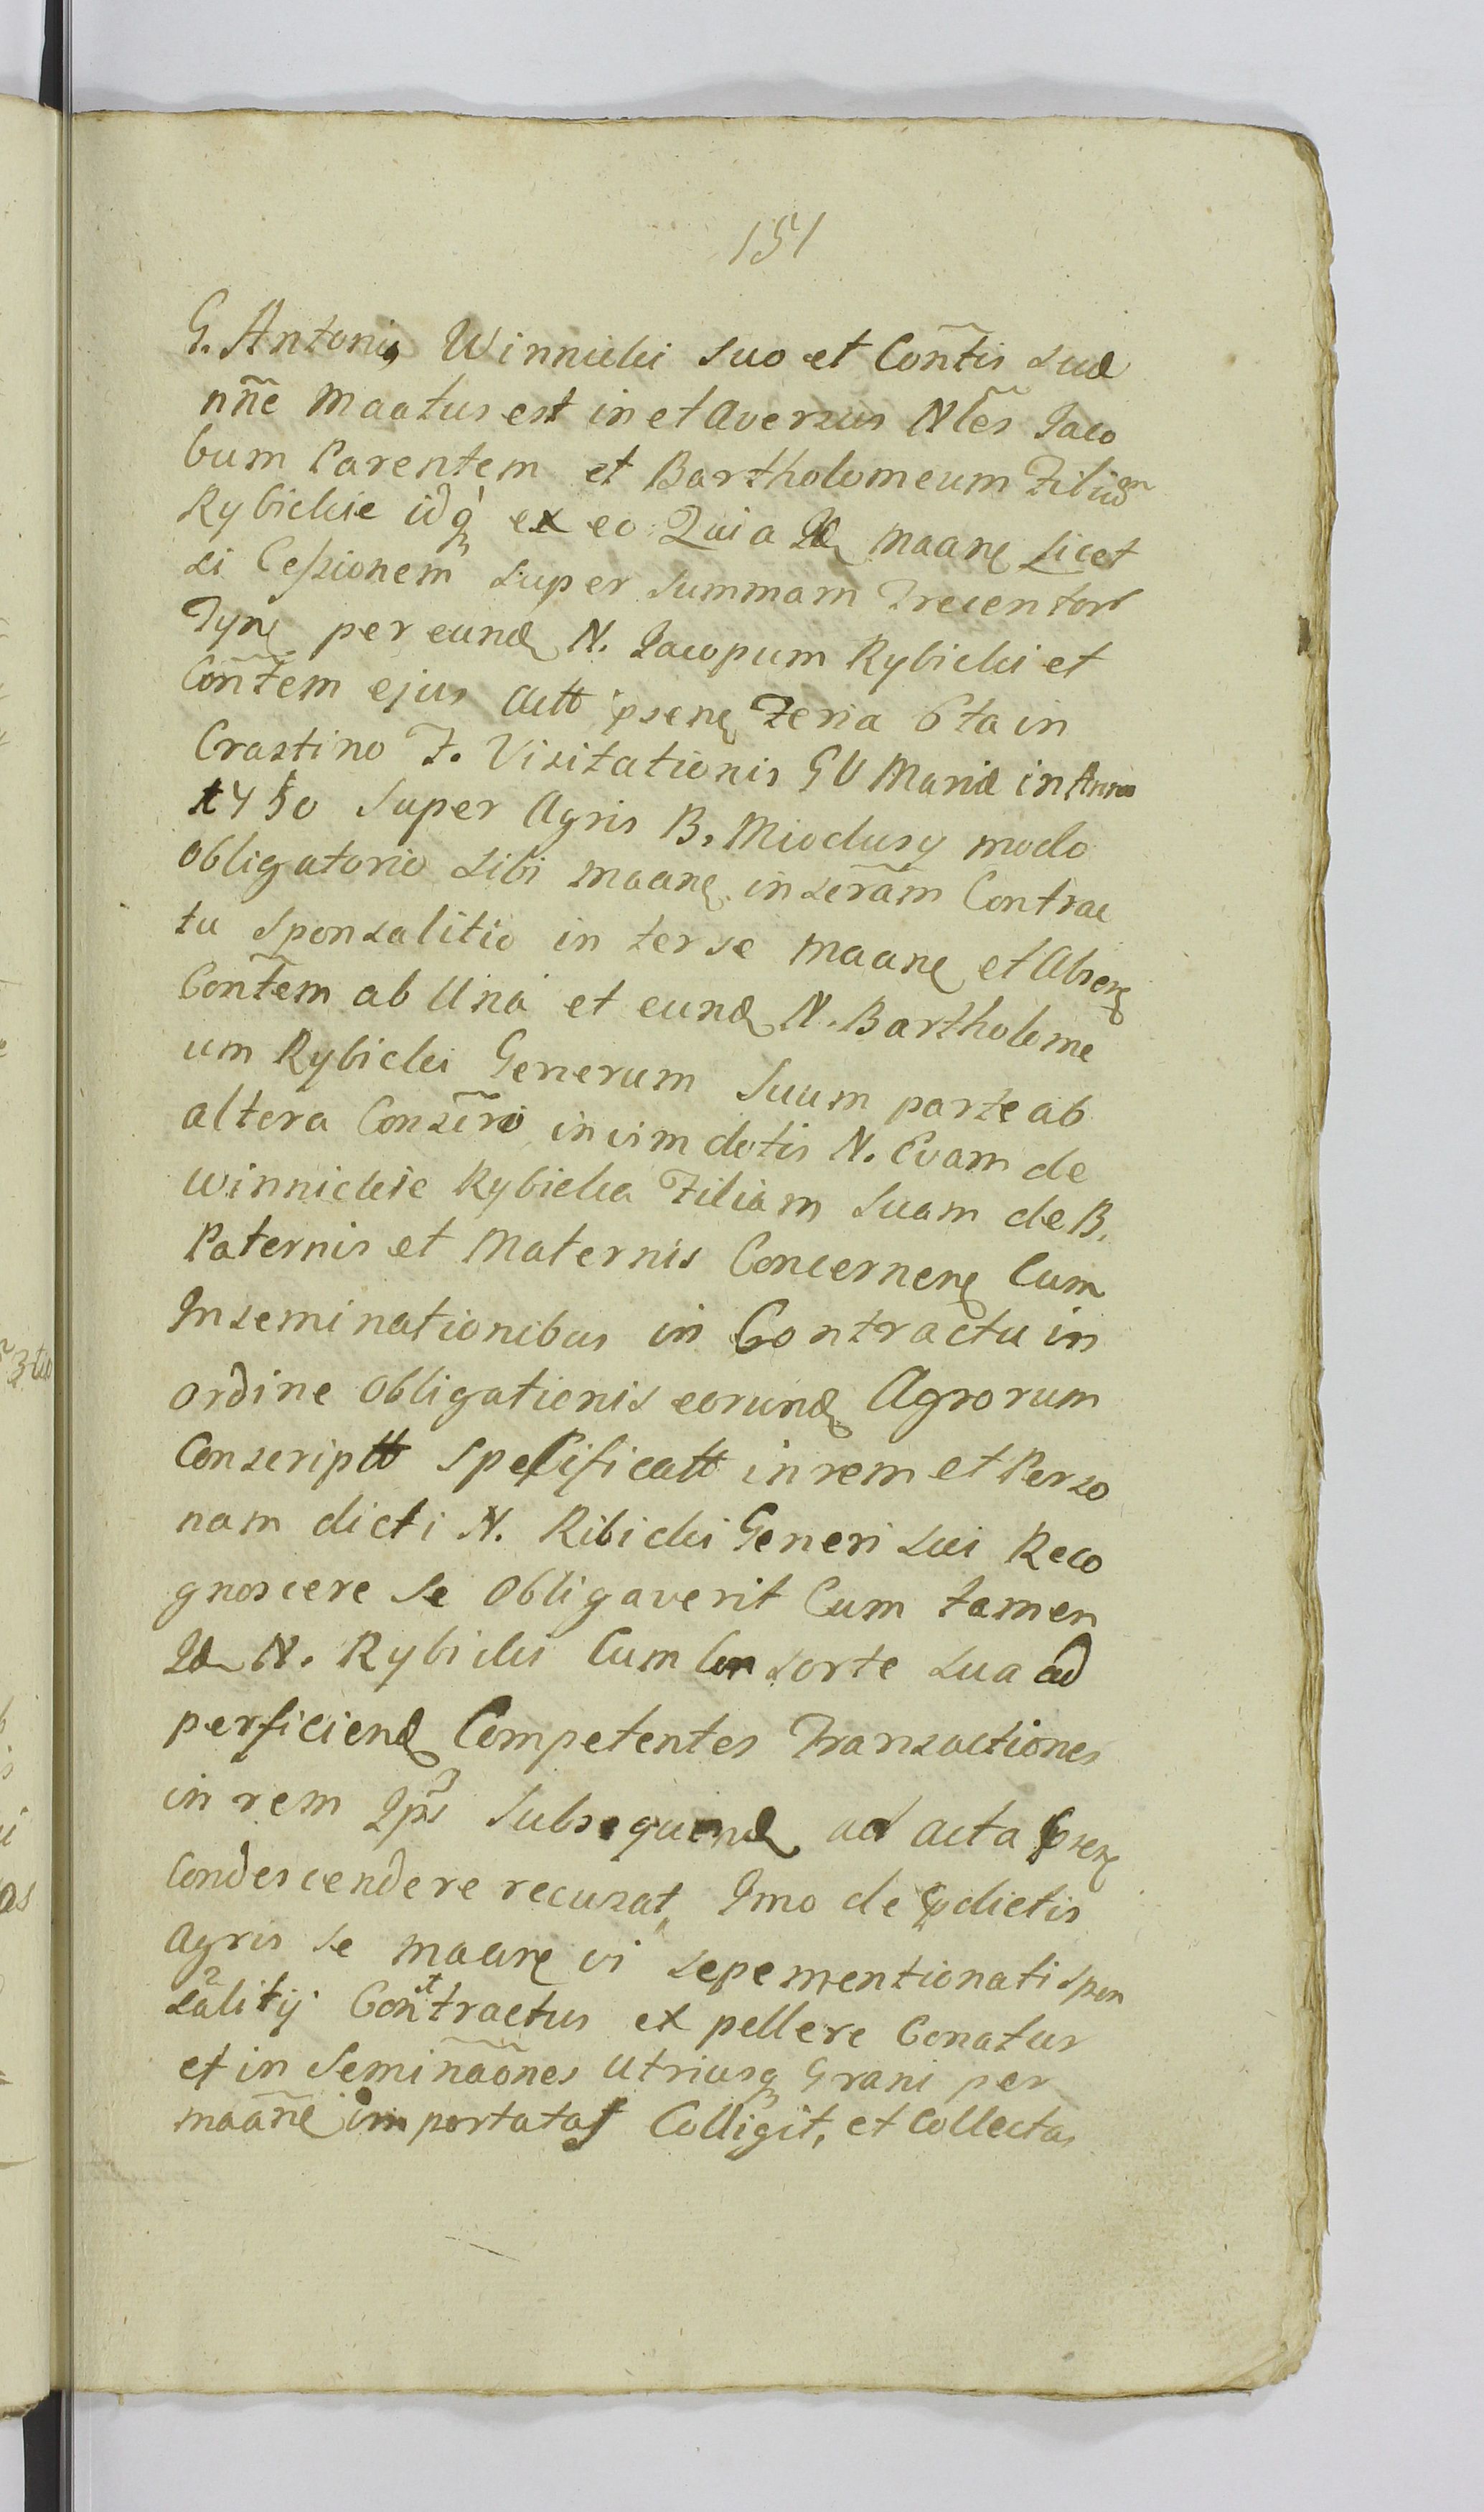 151
G. Antonis Winnicki suo et Con̄tis suæ
nn̄e Maatus est in et aversus Nl̄es Jaco
bum Parentem et Bartholomeum Filium
Rybickie idq̀ ex eo Quia Id maane licet
si Cessionem super summam Trecentor
Tyne per eund N. Jacopum Rybicki et
Con̄tem ejus Actt psene Feria 6ta in
Crastino F. Visitationis GV Mariæ in Anno
1750 super Agris B. Miodusy modo
obligatorio sibi maane in serām Contrac
tu sponsalitio in ter se maane et Absene
Con̄tem ab Unà et eund N. Bartholome
um Rybicki Generum suum parte ab
altera Consc̄ro in vim dotis N. Evam de
Winnickie Rybicka Filiam suam de B.
Paternis et Maternis Concernene Cum
Inseminationibus in Contractu in
ordine obligationis eorund Agrorum
Conscriptt Specificatt in rem et Perso
nam dicti N. Ribicki Generi sui Reco
gnoscere se obligaverit Cum tamen
Id N. Rybicki Cum Con sorte sua ad
perficiend Competentes Transactiones
in rem Ips̄ Subsequend ad acta psene
Condescendere recusat, Imo de pdictis
Agris se maane vi sepementionati spon
salitij Contractus ex pellere Conatur
et in Semināōnes utriusq Grani per
maān̄e im portatas Colligit, et Collectas
3tu
as